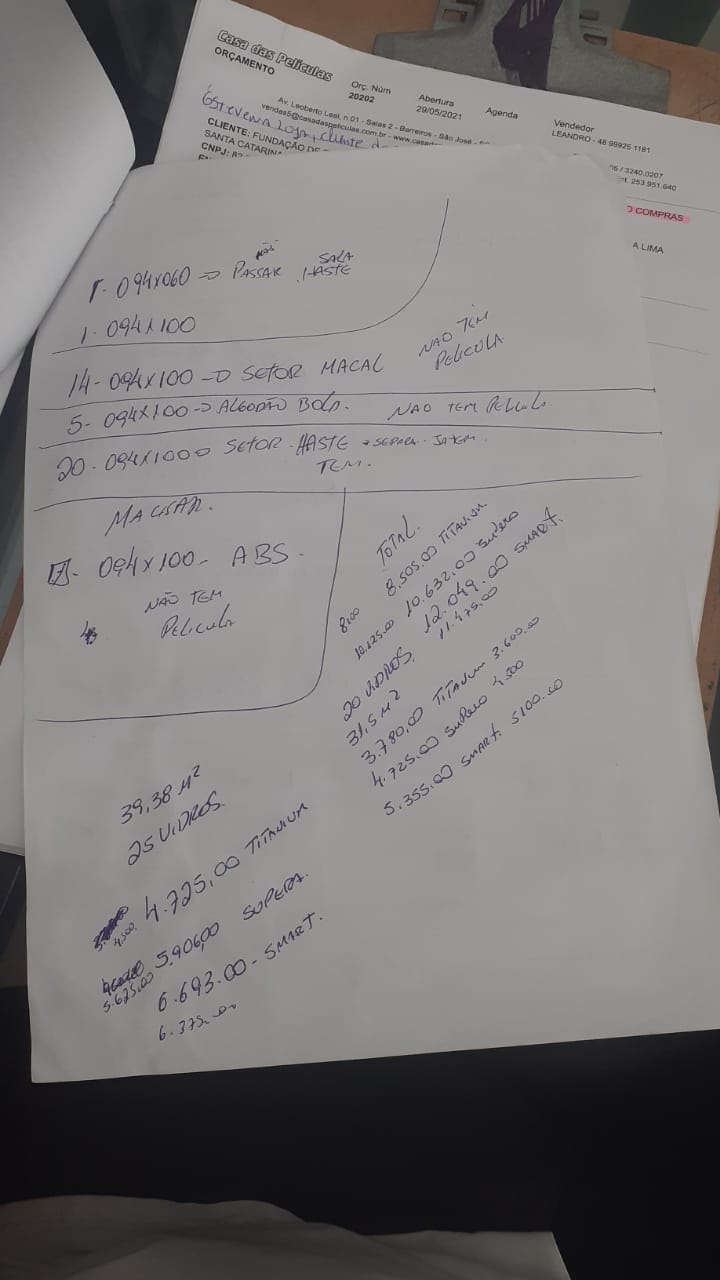 Casa das Películas
ORÇAMENTO
Orç. Núm
20202
Abertura
29/05/2021
Agenda
Vendedor
LEANDRO - 48 99925 1181
Av. Leoberto Leal, n 01 - Salas 2 - Barreiros - São José -
vendas5@casadaspeliculas.com.br - www.casad
CLIENTE: FUNDAÇÃO DE
SANTA CATARINA
CNPJ: 82
/ 3240.0207
253.951.640
COMPRAS
A LIMA
NÃO SALA
094X060 -> PASSAR HASTE
1 - 094X100
14 - 094X100 -> SETOR MACAL NAO TEM
PELICULA
5 - 094X100 -> ALGODÃO BOLA. NAO TEM PELICULA
20 - 094X100 -> SETOR HASTE
TEM.
7 - 094X100 - ABS -
NÃO TEM
PELICULA
TOTAL.
8100 8.505,00 TITANIUM
10.125.00 10.632,00 SUPERA
12.049.00 SMART.
11.475.00
20 VIDROS.
31,5 M²
3.780,00 TITANIUM 3.600.00
4.725.00 SUPERA 4.500
5.355.00 SMART. 5100.00
39,38 M²
25 VIDROS.
4.500, 4.725,00 TITANIUM
5.625.00 5.906,00 SUPERA.
6.693.00 - SMART.
6.375.00